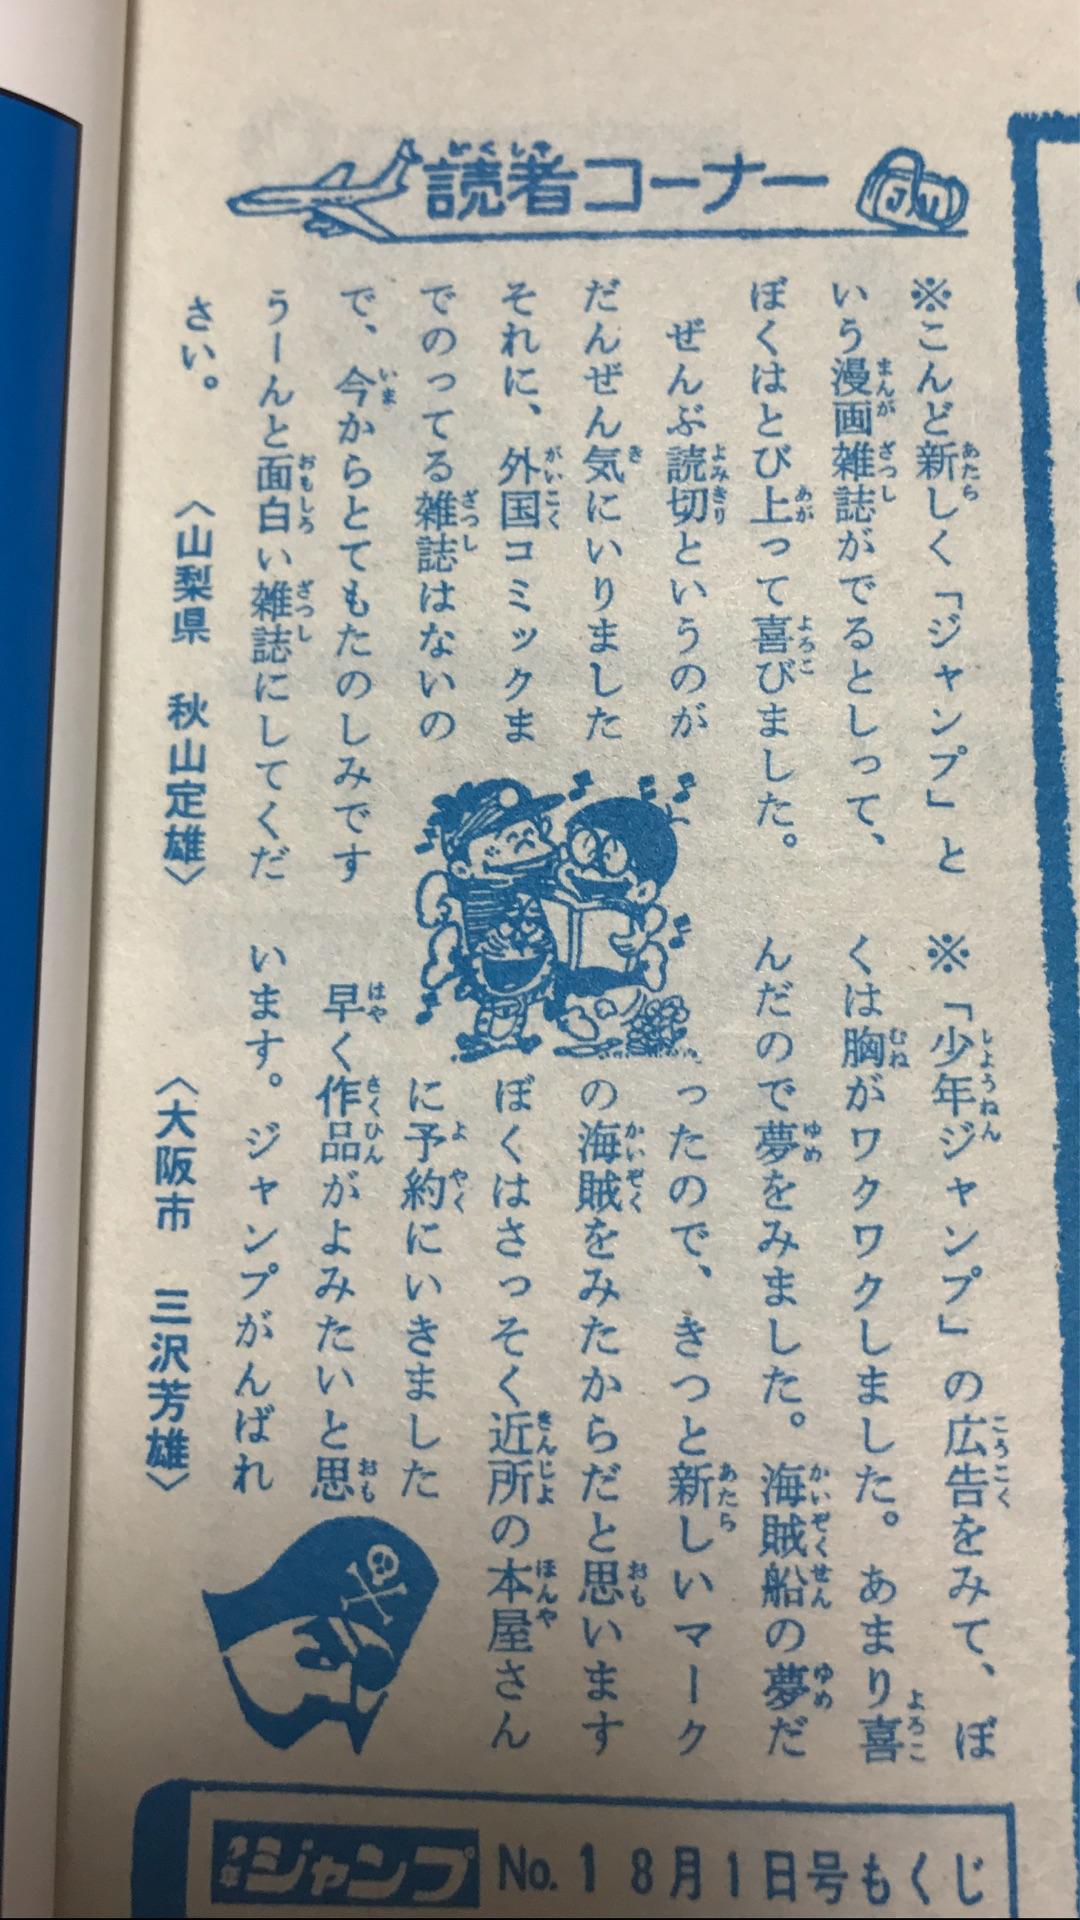 読者コーナー
※こんど新しく「ジャンプ」と
いう漫画雑誌がでるとしって、
ぼくはとび上って喜びました。
ぜんぶ読切というのが
だんぜん気にいりました
それに、外国コミックま
でのってる雑誌はないの
で、今からとてもたのしみです
うーんと面白い雑誌にしてくだ
さい。
〈山梨県 秋山定雄〉
※「少年ジャンプ」の広告をみて、ぼ
くは胸がワクワクしました。あまり喜
んだので夢をみました。海賊船の夢だ
ったので、きっと新しいマーク
の海賊をみたからだと思います
ぼくはさっそく近所の本屋さん
に予約にいきました
早く作品がよみたいと思
います。ジャンプがんばれ
〈大阪市 三沢芳雄〉
少年ジャンプ No.1 8月1日号もくじ